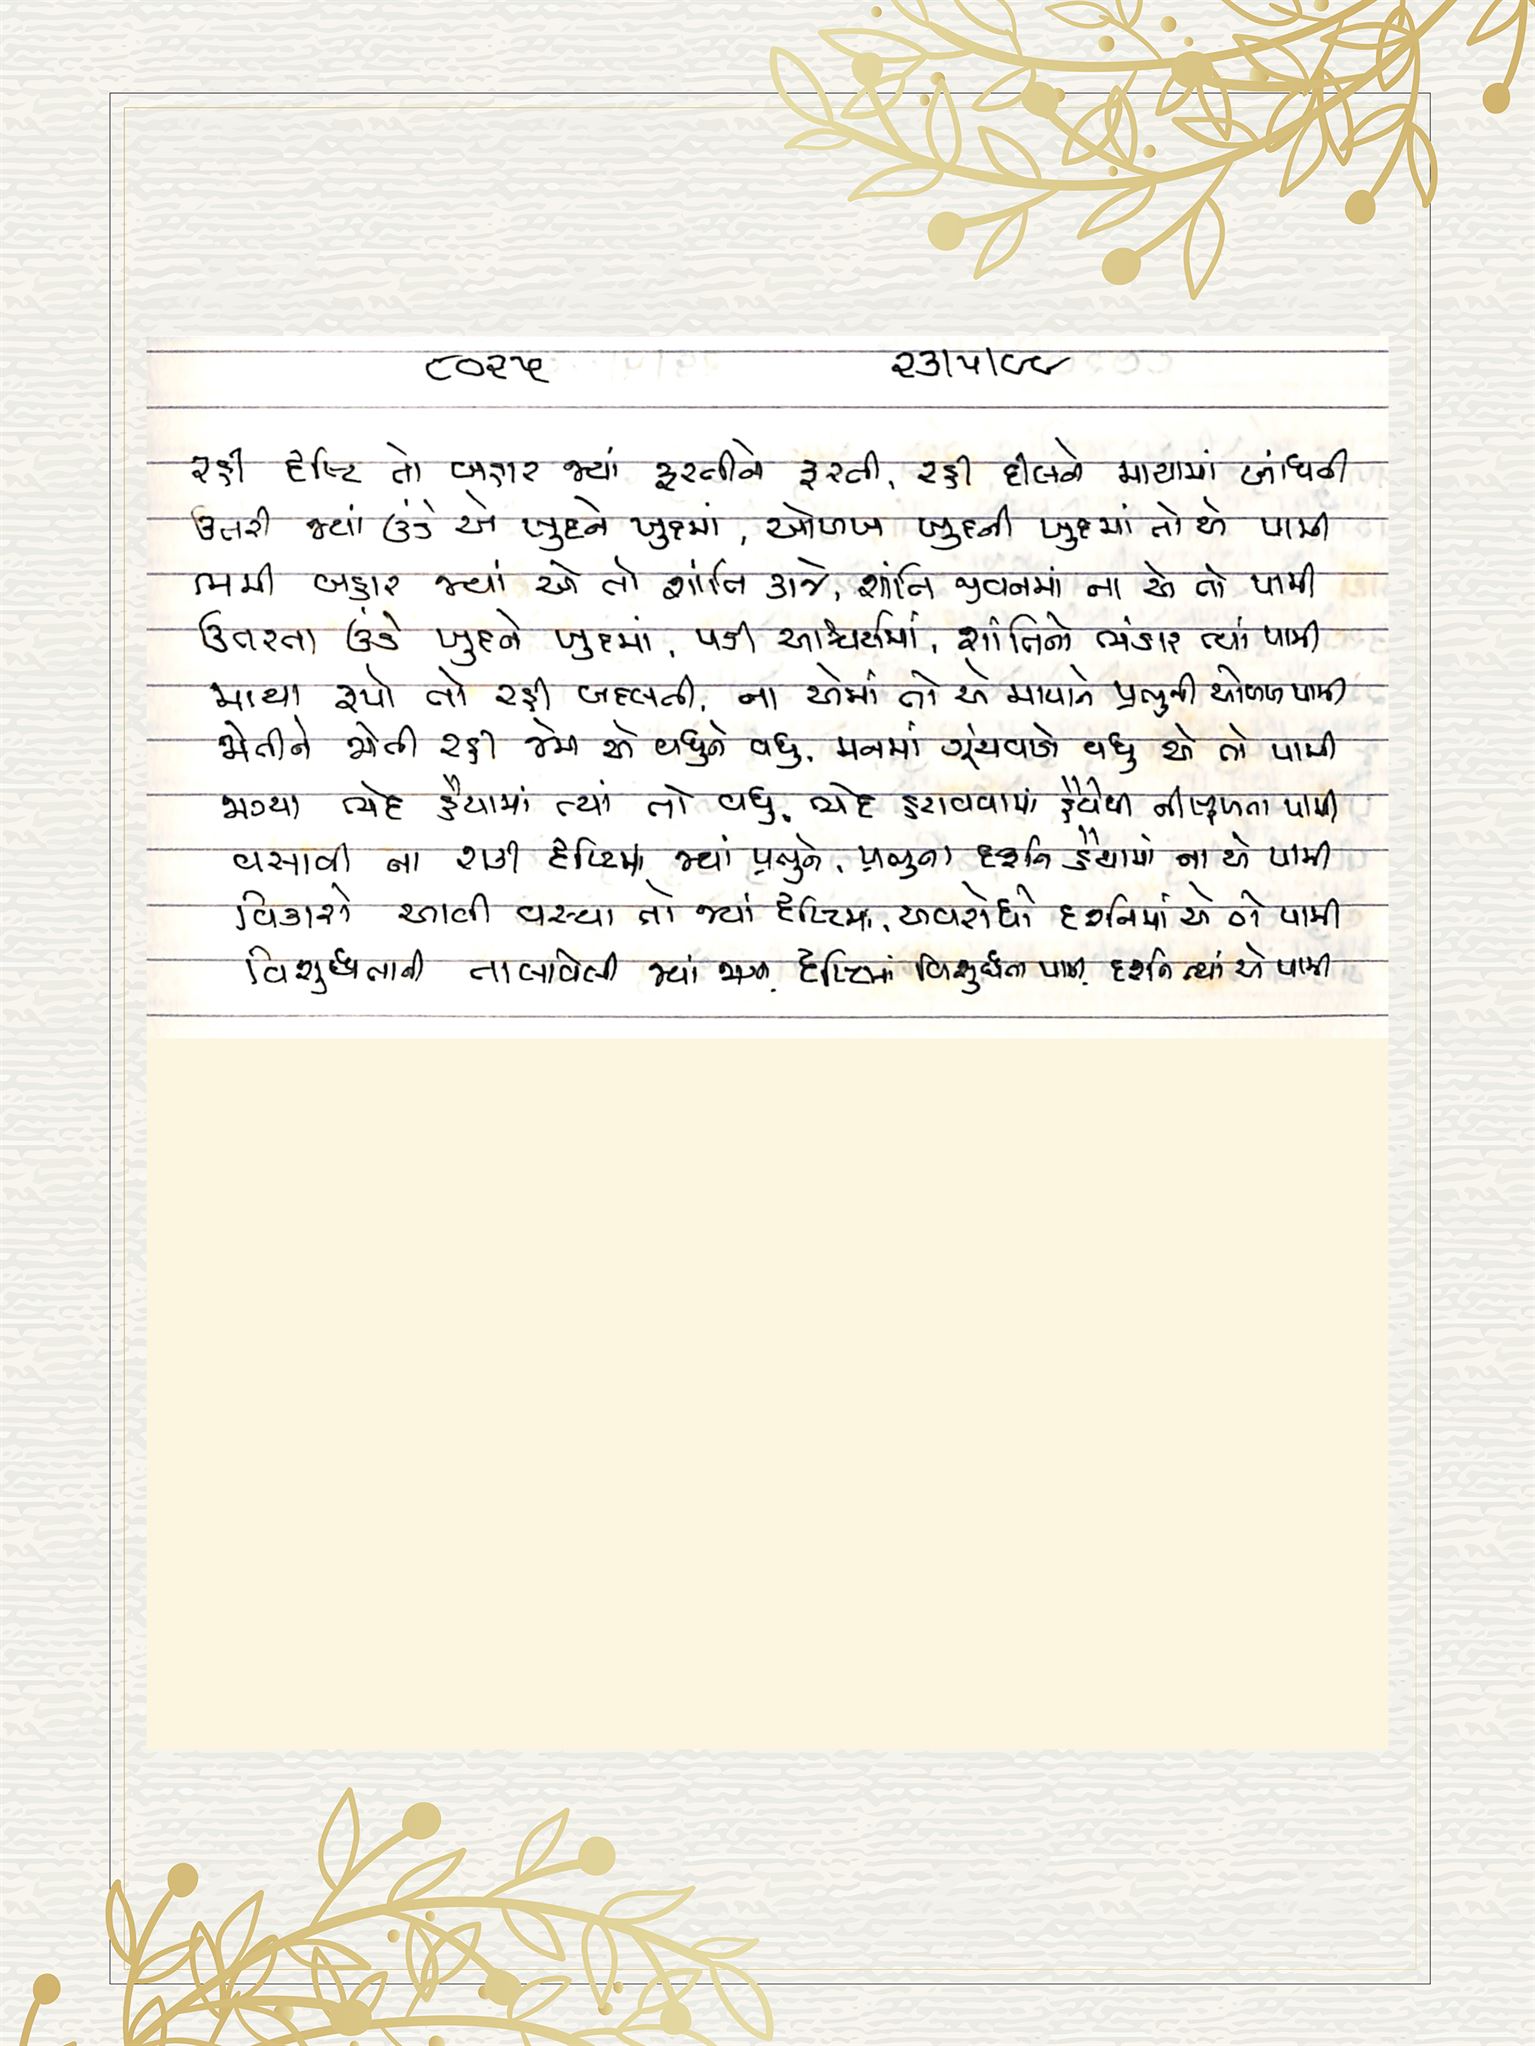 ૮૦૨૫ ૨૩/૫/૯૯
રહી દૃષ્ટિ તો બહાર જ્યાં ફરતીને ફરતી, રહી દીલને માયામાં બાંધતી
ઉતરી જ્યાં ઉંડે એ ખુદને ખુદમાં, ઓળખ ખુદની ખુદમાં તો એ પામી
ભમી બહાર જ્યાં એ તો શાંતિ કાજે, શાંતિ જીવનમાં ના એ તો પામી
ઉતરતા ઉંડે ખુદને ખુદમાં, પડી આશ્ચર્યમાં, શાંતિનો ભંડાર ત્યાં પામી
માયા રૂપો તો રહી બદલતી, ના એમાં તો એ માયાને પ્રભુની ઓળખ પામી
જોતીને જોતી રહી જેમ એ વધુને વધુ, મનમાં ગૂંચવાડો વધુ એ તો પામી
જાગ્યા ભેદ હૈયામાં ત્યાં તો વધુ, ભેદ હટાવવામાં હૈયેથી નીષ્ફળતા પામી
વસાવી ના શકી દૃષ્ટિમાં જ્યાં પ્રભુને, પ્રભુના દર્શન હૈયામાં ના એ પામી
વિકારો આવી વસ્યા તો જ્યાં દૃષ્ટિમાં, અવરોધો દર્શનમાં એ તો પામી
વિશુધ્ધતાની તાલાવેલી જ્યાં જાગી, દૃષ્ટિમાં વિશુધ્ધતા પામી, દર્શન ત્યાં એ પામી